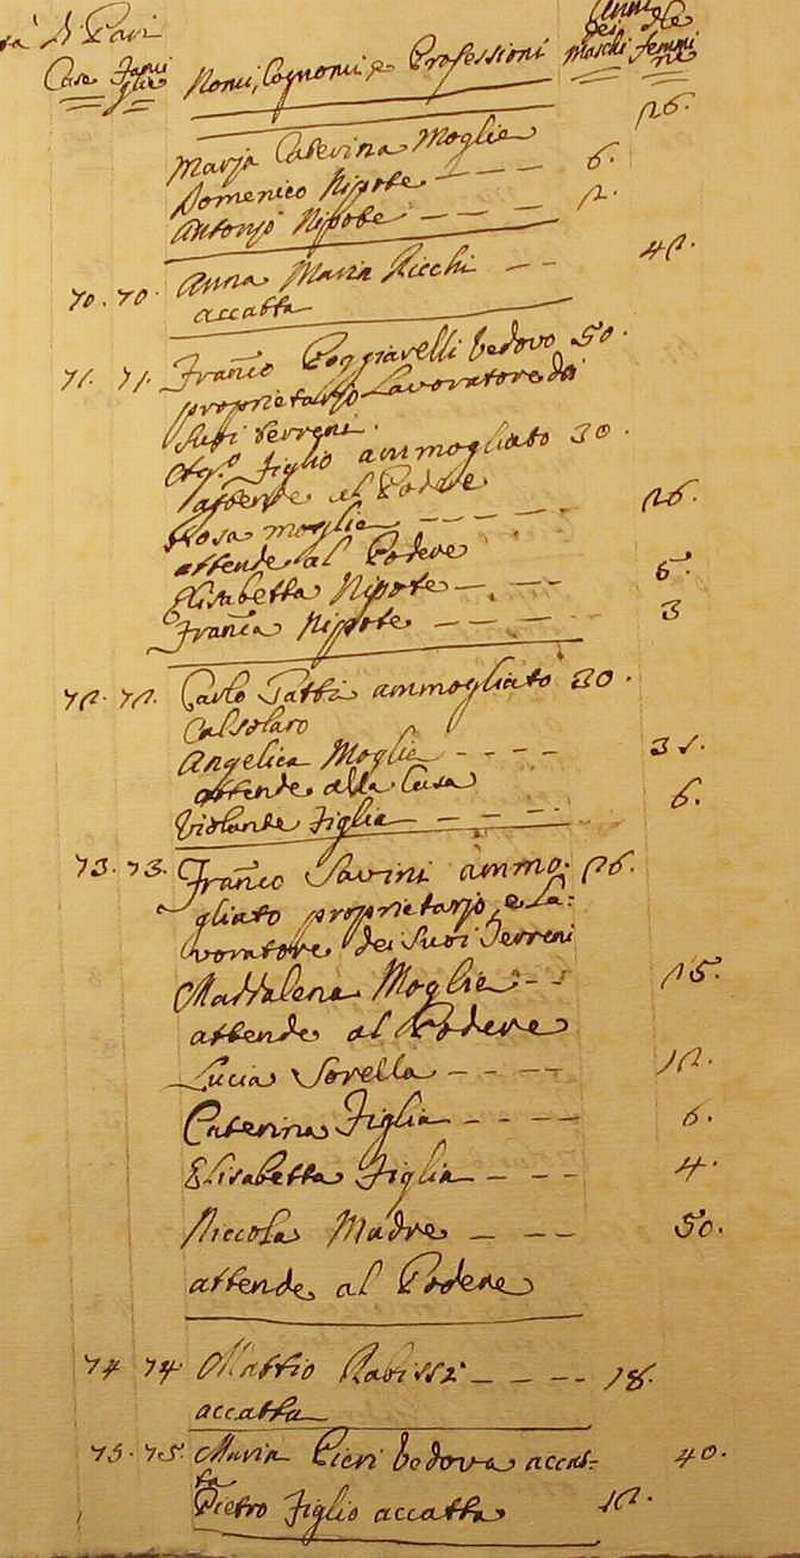 Di Pavi
Case Fami
glie Nomi, Cognomi, e Professioni Anni
dei
maschi delle
femmi
ne
Maria Caterina Moglie 26.
Domenico Nipote - - - - 6.
Antonjo Nipote - - - 2.
70. 70. Anna Maria Ricchi - - 42.
accatta
71. 71. Franco Poggiarelli Vedovo 50.
proprietarjo Lavoratore dei
Suoi terreni.
Figlio ammogliato 30.
attende al Podere
Rosa moglie - - - - 26.
attende al Podere
Elisabetta Nipote - - - 5.
Franca Nipote - - - 3
72. 72. Carlo Tattà ammogliato 30.
Calsolaro
Angelica Moglie - - - - 32.
attende alla Casa
Violante Figlia - - - 6.
73. 73. Franco Savini ammo- 26.
gliato proprietarjo, e La=
voratore dei Suoi Terreni
Maddalena Moglie - - 25.
attende al Podere
Lucia Sorella - - - - 12.
Caterina Figlia - - - - 6.
Elisabetta Figlia - - - 4.
Niccola Madre - - - 50.
attende al Podere
74 74 Mattio Rabissi - - - - 18.
accatta
75. 75. Maria Pieri Vedova accat= 40.
ta
Pietro Figlio accatta 12.